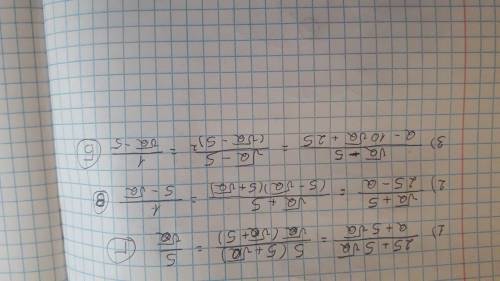 1) (25 + 5√a)/(a + 5√a) = 5(5 + √a)/(√a(√a + 5)) = 5/√a Г
2) (√a + 5)/(25 - a) = (√a + 5)/((5 - √a)(5 + √a)) = 1/(5 - √a) В
3) (√a - 5)/(a - 10√a + 25) = (√a - 5)/(√a - 5)² = 1/(√a - 5) Б